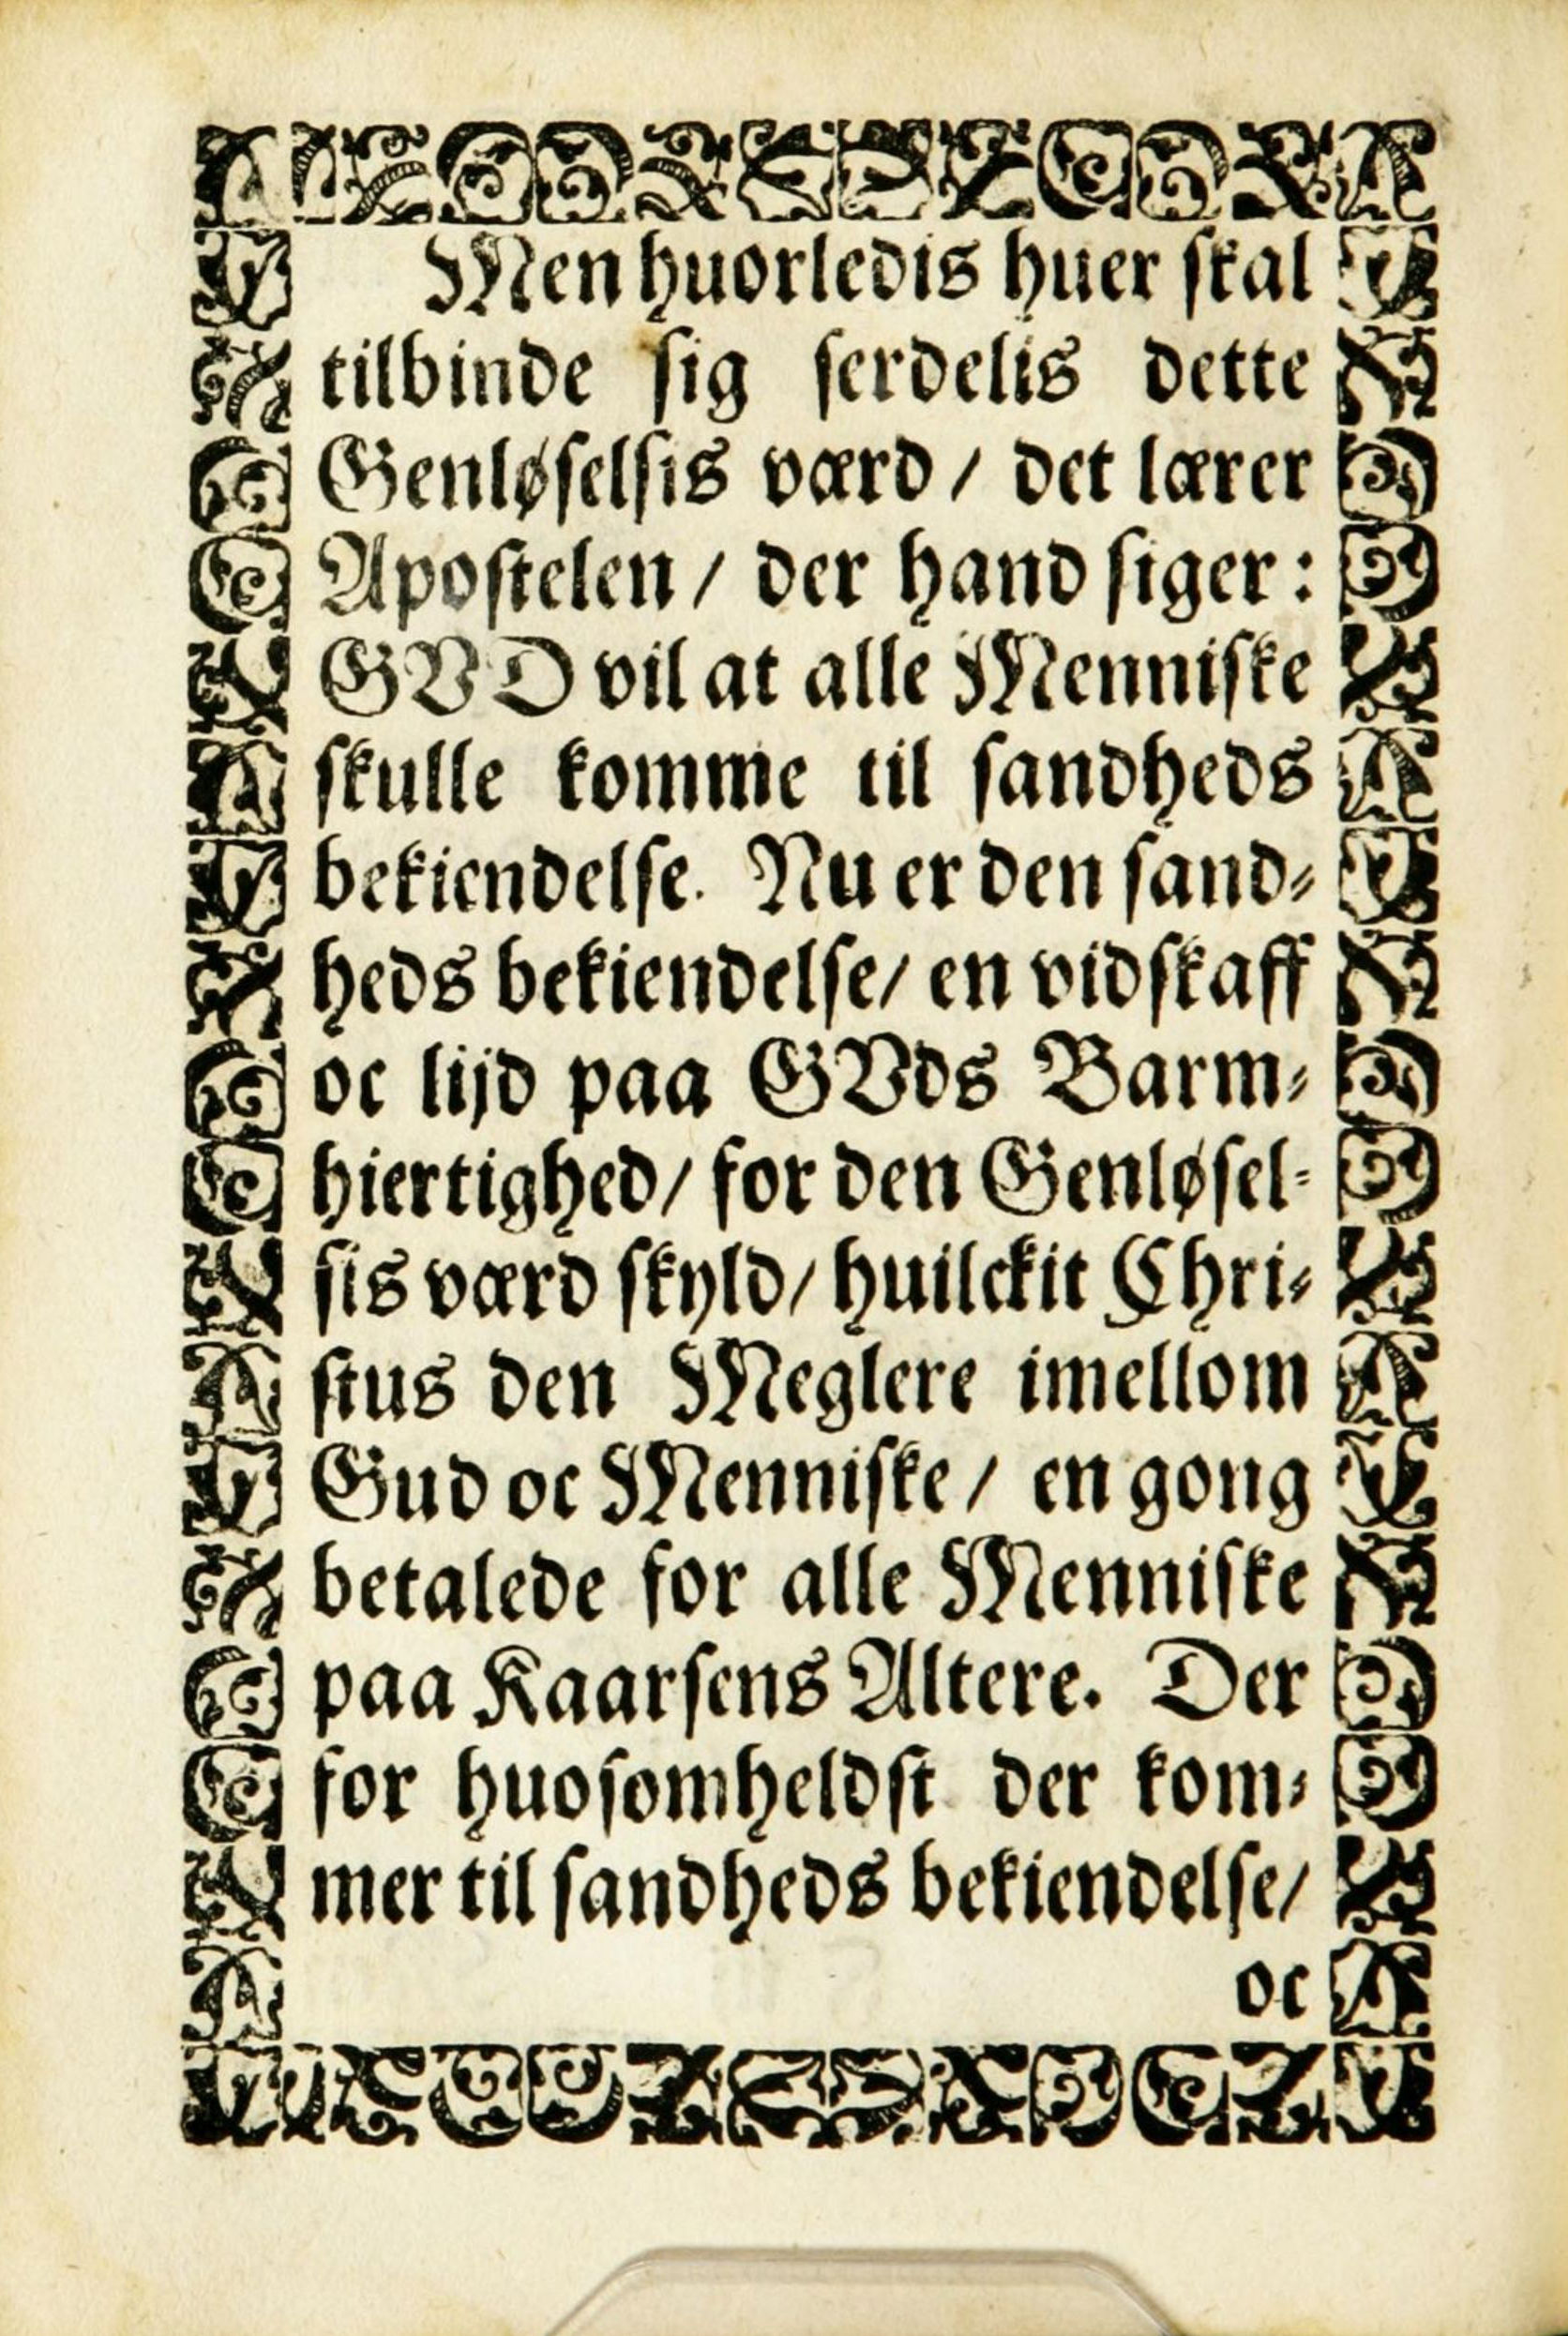 Men huorledis huer skal
tilbinde sig serdelis dette
Genløselsis værd / det lærer
Apostelen / der hand siger:
GVD vil at alle Menniske
skulle komme til sandheds
bekiendelse. Nu er den sand⸗
heds bekiendelse / en vidskaff
oc lijd paa GVds Barm⸗
hiertighed / for den Genløsel⸗
sis værd skyld / huilckit Chri⸗
stus den Meglere imellom
Gud oc Menniske / en gong
betalede for alle Menniske
paa Kaarsens Altere. Der
for huosomheldst der kom⸗
mer til sandheds bekiendelse /
oc